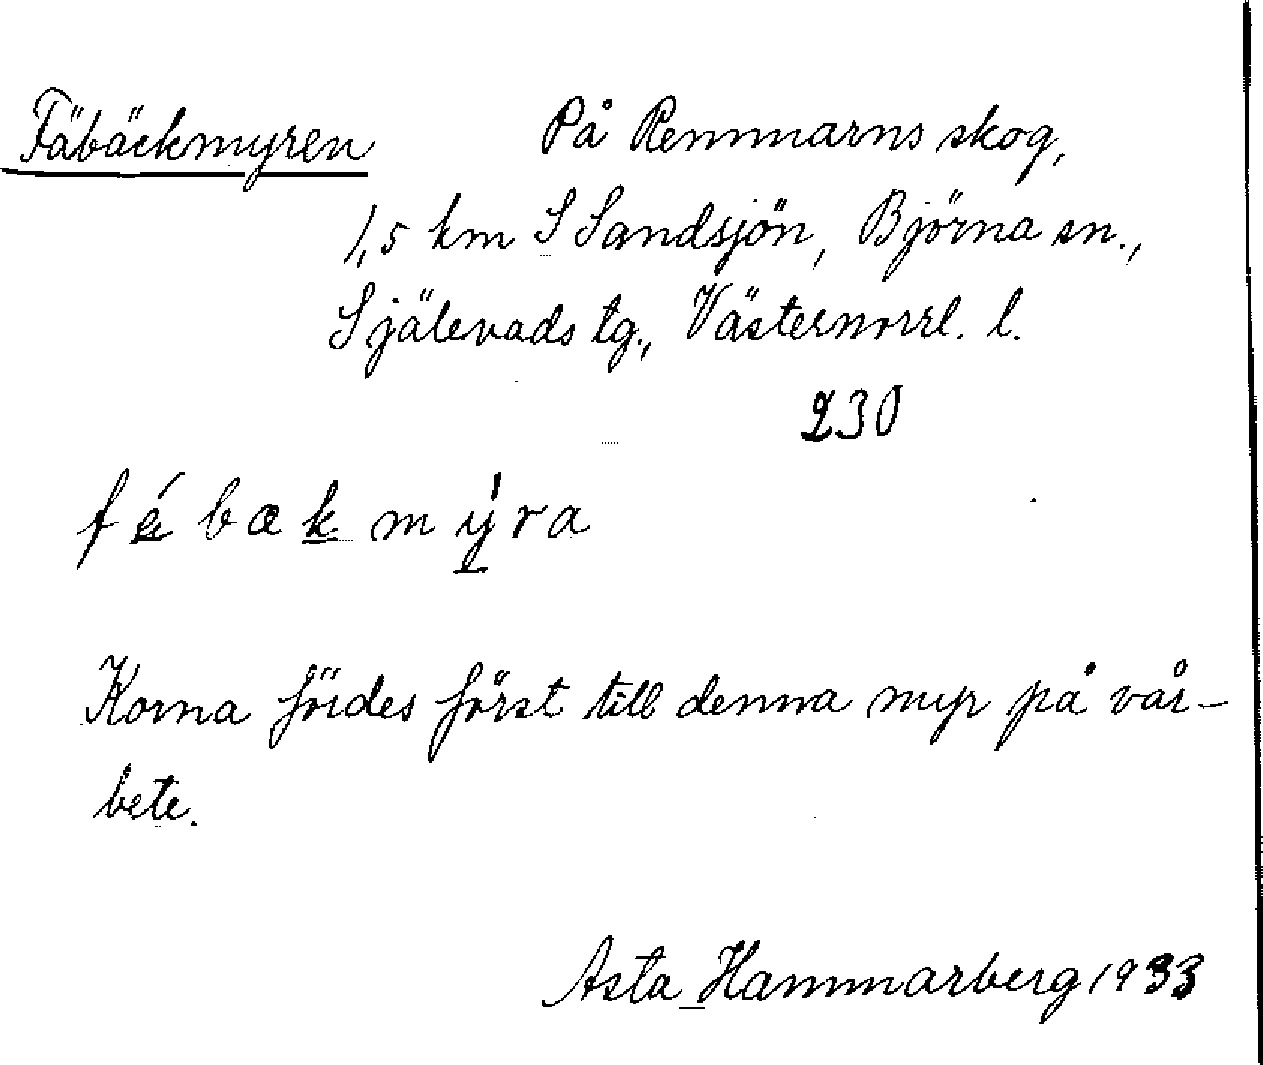 Fäbäckmyren På Remmarns skog,
1,5 km S Sandsjön, Björna sn.,
Själevads tg., Västernorrl. l.
230
fǽbækmýra
Korna fördes först till denna myr på vår-
bete.
Asta Hammarberg 1933